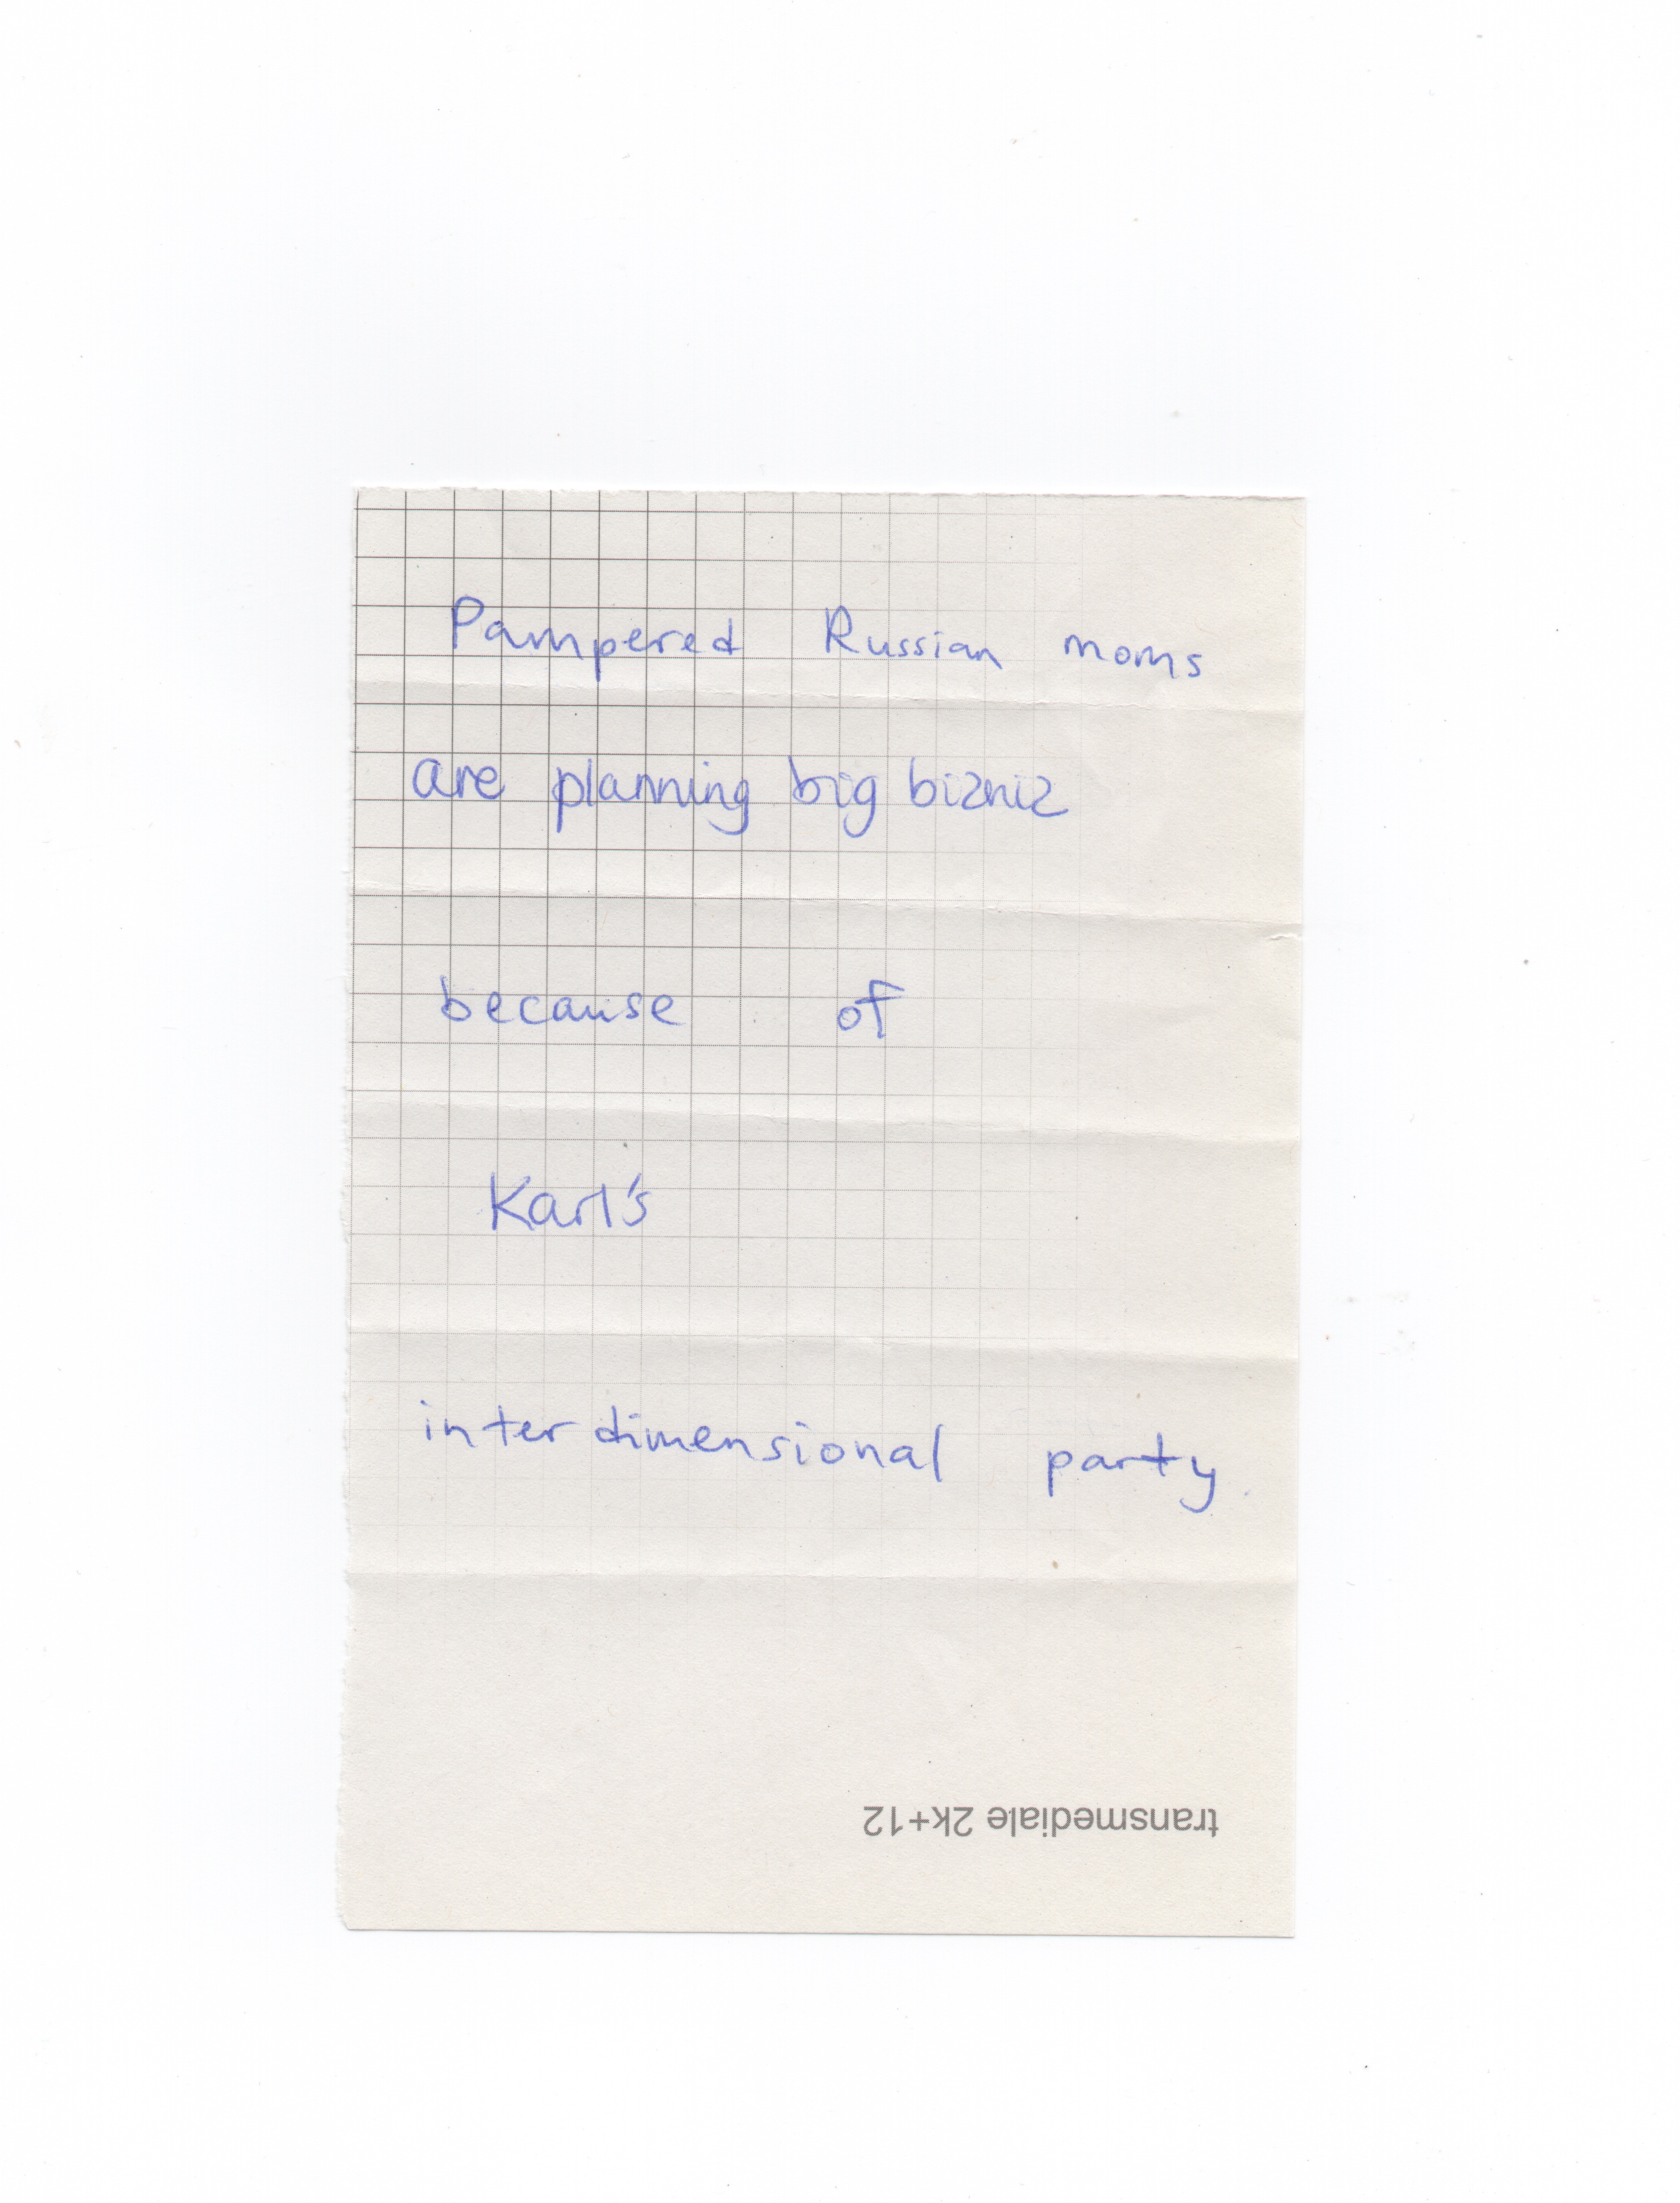 Pampered Russian moms
are planning big bizniz
because of
Karl's
interdimensional party.
transmediale 2k+12